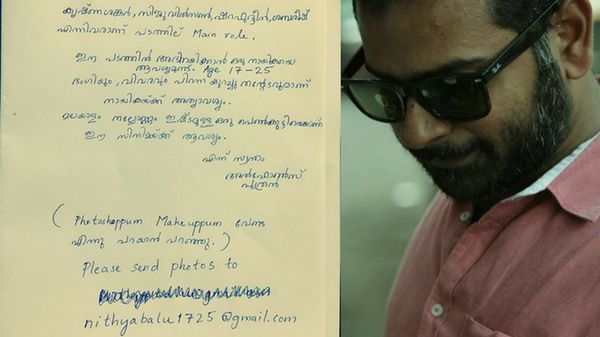 കൃഷ്ണശങ്കർ, സിജുവിൽസൺ, ഷറഫുദ്ദീൻ, ശബരീഷ്
എന്നിവരാണ് പടത്തില് Main role.
ഈ പടത്തിൽ അഭിനയിക്കാൻ ഒരു നായികയെ
ആവശ്യമുണ്ട്. Age 17-25
ഭംഗിയും, വിവരവും പിന്നെ കുറച്ചു തന്റേടവുമാണ്
നായികയ്ക്ക് അത്യാവശ്യം.
മലയാളം നല്ലോണം ഇഷ്ടമുള്ള ഒരു പെൺകുട്ടിയെയാണ്
ഈ സിനിമയ്ക്ക് ആവശ്യം.
എന്ന് സ്വന്തം
അൽഫോൺസ്
പുത്രൻ
( Photoshoppum Makeuppum വേണ്ട
എന്നു പറയാൻ പറഞ്ഞു. )
Please send photos to
nithyabalu1725@gmail.com
Ray-Ban